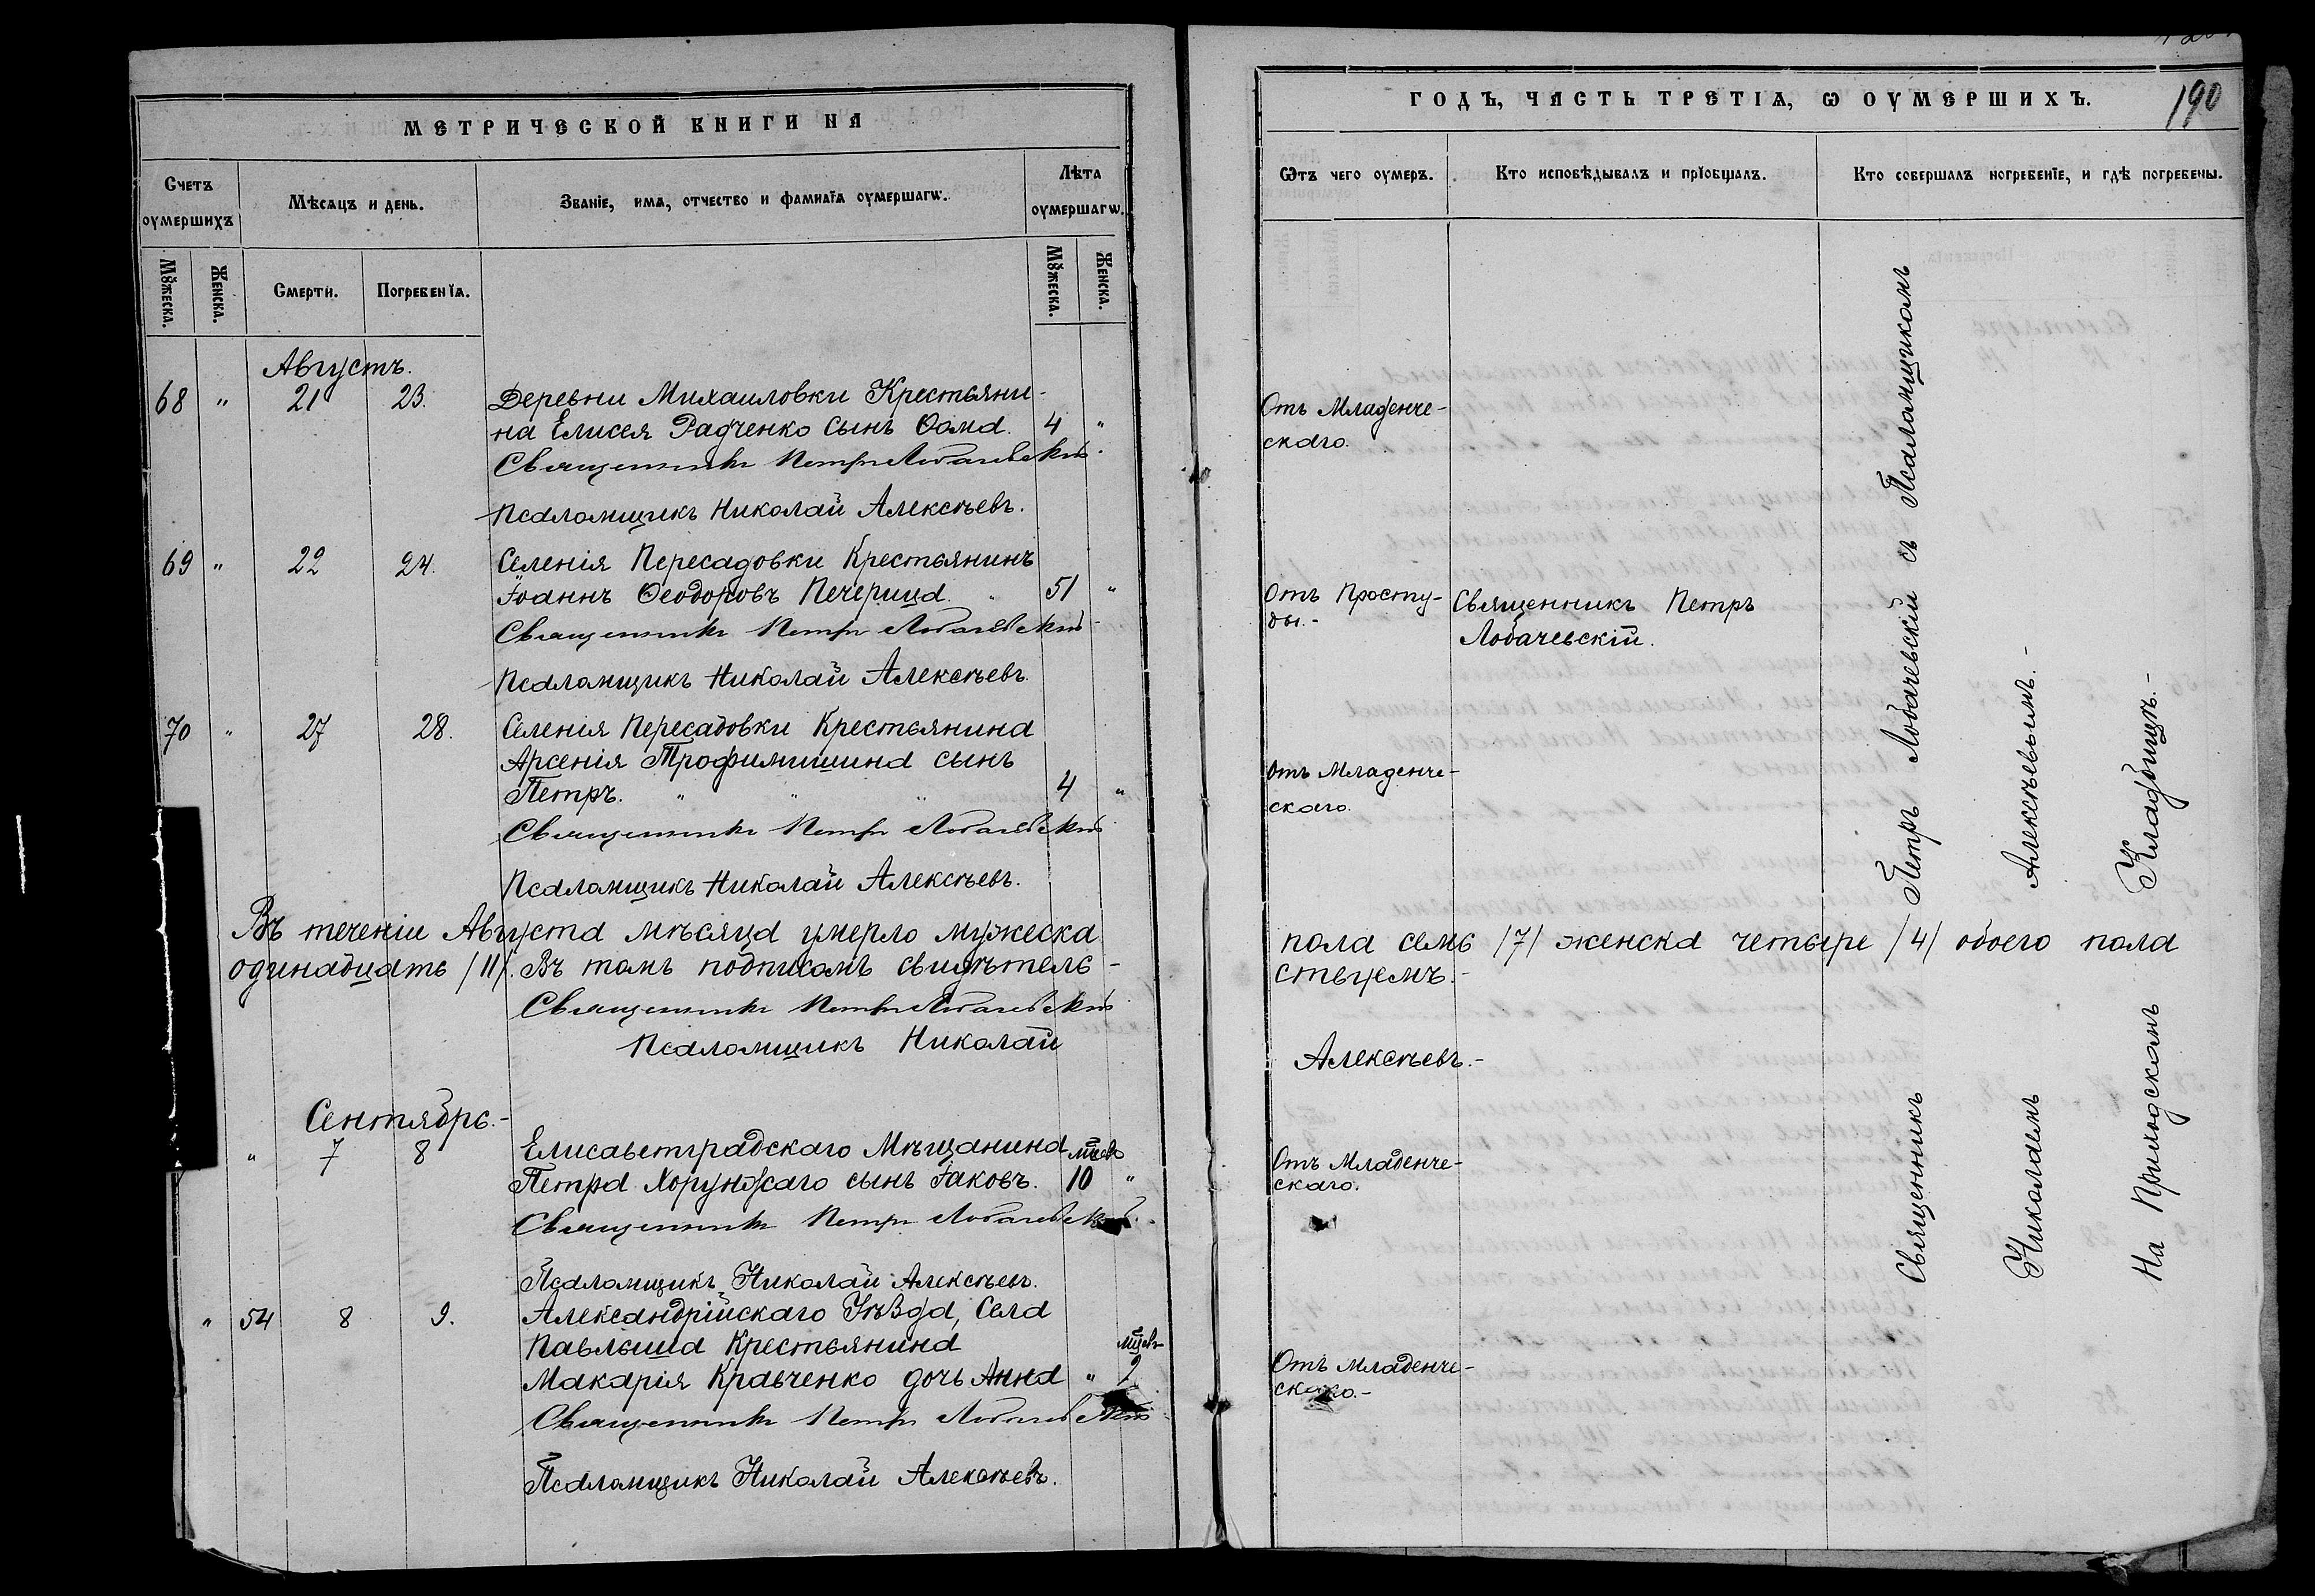 МЕТРИЧЕСКОЙ КНИГИ НА
Счетъ оумершихъ
Мѣсяцъ и день.
Званіе, имя, отчество и фамилія оумершагѡ.
Лѣта оумершагѡ.
Мꙋжеска.
Женска.
Смерти.
Погребенїя.
Мꙋжеска.
Женска.
Августъ.
68 " 21 23. Деревни Михаиловки Крестьяни-
на Елисея Радченко сынъ Ѳома. 4 "
Священникъ Петръ Лобачевскій
Псаломщикъ Николай Алексѣевъ.
69 " 22 24. Селенія Пересадовки Крестьянинъ
Іоаннъ Ѳеодоровъ Печерица. " 51 "
Священникъ Петръ Лобачевскій
Псаломщикъ Николай Алексѣевъ.
70 " 27 28. Селенія Пересадовки Крестьянина
Арсенія Трофимишина сынъ
Петръ. " " " 4 "
Священникъ Петръ Лобачевскій
Псаломщикъ Николай Алексѣевъ.
Въ теченіи Августа мѣсяца умерло мужеска
одинадцать /11/. Въ томъ подписомъ свидѣтель-
Священникъ Петръ Лобачевскій
Псаломщикъ Николай
Сентябрь.-
" 7 8 Елисаветградскаго Мѣщанина мцевъ
Петра Хорунжаго сынъ Іаковъ. 10 "
Священникъ Петръ Лобачевскій.
Псаломщикъ Николай Алексѣевъ.
" 54 8 9. Александрійскаго Уѣзда, Села
Павлыша Крестьянина мцевъ
Макарія Кравченко дочь Анна " 9
Священникъ Петръ Лобачевскій
Псаломщикъ Николай Алексѣевъ.
ГОДЪ, ЧАСТЬ ТРЕТІѦ, Ѡ ОУМЕРШИХЪ.
190
Ѿтъ чего оумеръ.
Кто исповѣдывалъ и прїобщалъ.
Кто совершалъ погребенїе, и гдѣ погребены.
Отъ Младенче-
скаго.
Отъ Просту-
ды.-
Священникъ Петръ
Лобачевскій.
Отъ Младенче-
скаго.
пола семь /7/ женска четыре /4/ обоего пола
ствуемъ.-
Алексѣевъ.-
Отъ Младенче-
скаго.
Отъ Младенче-
скаго.-
Священникъ Петръ Лобачевскій съ Псаломщикомъ
Николаемъ Алексѣевымъ.-
На Приходскомъ Кладбищѣ.-